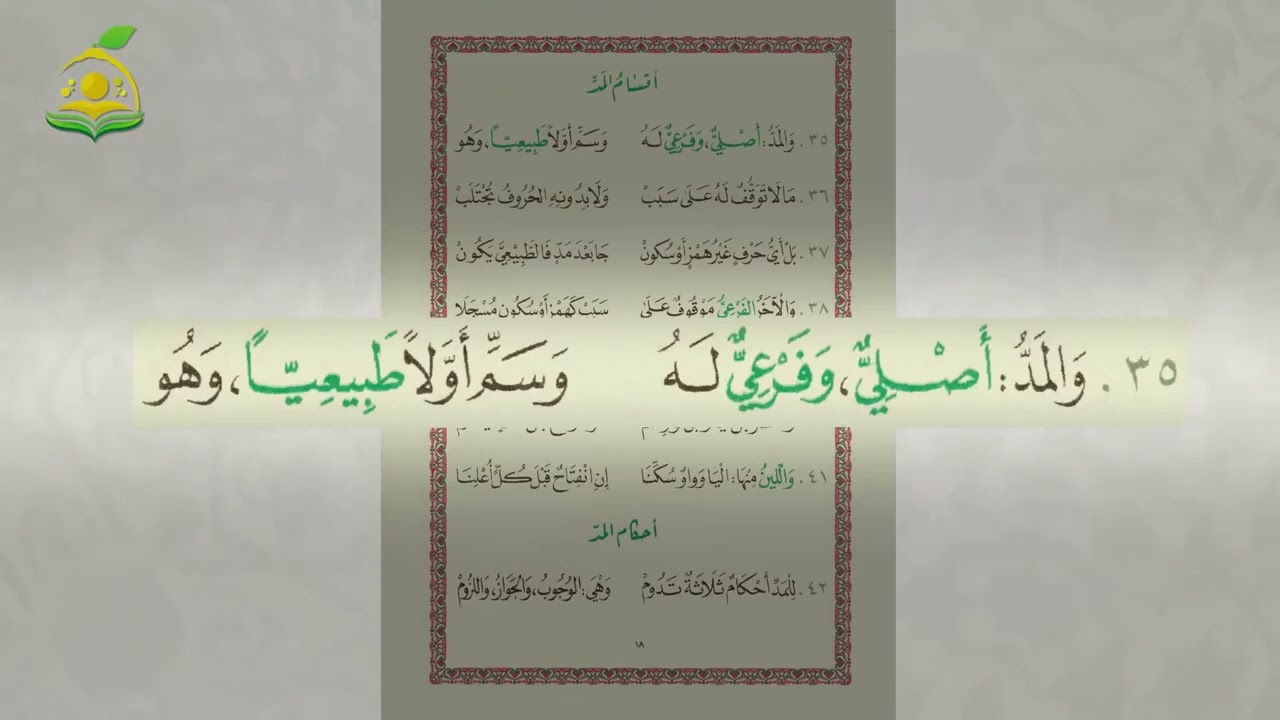 أقسام المَدِّ
٣٥. وَالمَدُّ: أَصْلِيٌّ، وَفَرْعِيٌّ لَهُ وَسَمِّ أَوَّلاً طَبِيعِيّاً، وَهُو
٣٦. مَا لَا تَوَقُّفٌ لَهُ عَلَى سَبَبْ وَلَا بِدُونِهِ الحُرُوفُ تُجْتَلَبْ
٣٧. بَلْ أَيُّ حَرْفٍ غَيْرُ هَمْزٍ أَوْ سُكُونْ جَا بَعْدَ مَدٍّ فَالطَّبِيعِيَّ يَكُونْ
٣٨. وَالآخَرُ الفَرْعِيُّ مَوْقُوفٌ عَلَى سَبَبْ كَهَمْزٍ أَوْ سُكُونٍ مُسْجَلَا
٣٥. وَالمَدُّ: أَصْلِيٌّ، وَفَرْعِيٌّ لَهُ وَسَمِّ أَوَّلاً طَبِيعِيّاً، وَهُو
٤١. وَاللِّينُ مِنْهَا: الْيَا وَوَاوٌ سُكِّنَا إِنِ انْفِتَاحٌ قَبْلَ كُلٍّ أُعْلِنَا
أحكام المدّ
٤٢. لِلْمَدِّ أَحْكَامٌ ثَلَاثَةٌ تَدُومْ وَهْيَ: الوُجُوبُ، وَالجَوَازُ، وَاللزُومْ
١٨